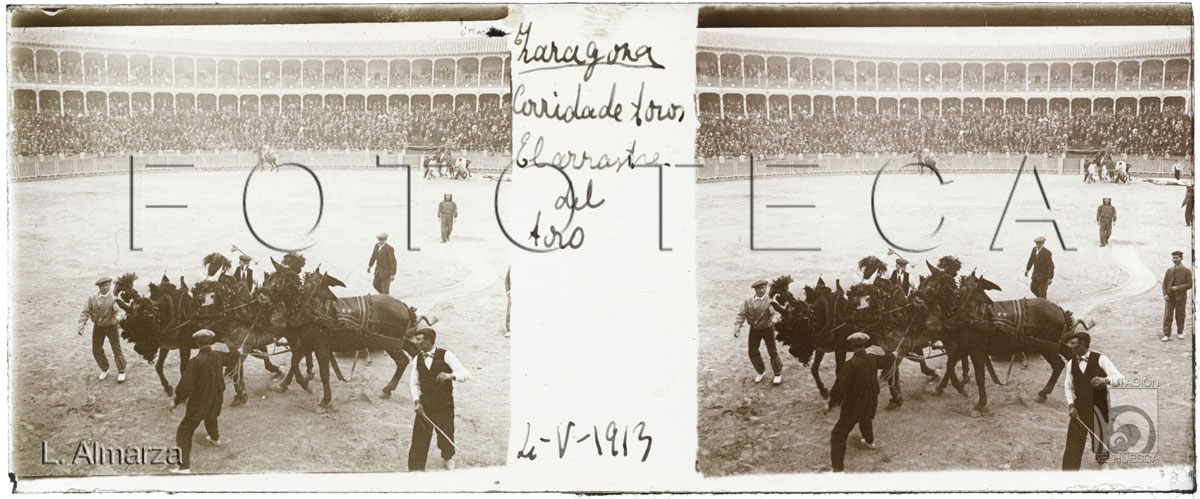 Zaragoza
Corrida de toros
El arrastre
del
toro
4-V-1913
FOTOTECA
L. Almarza
DIPUTACIÓN
DE HUESCA